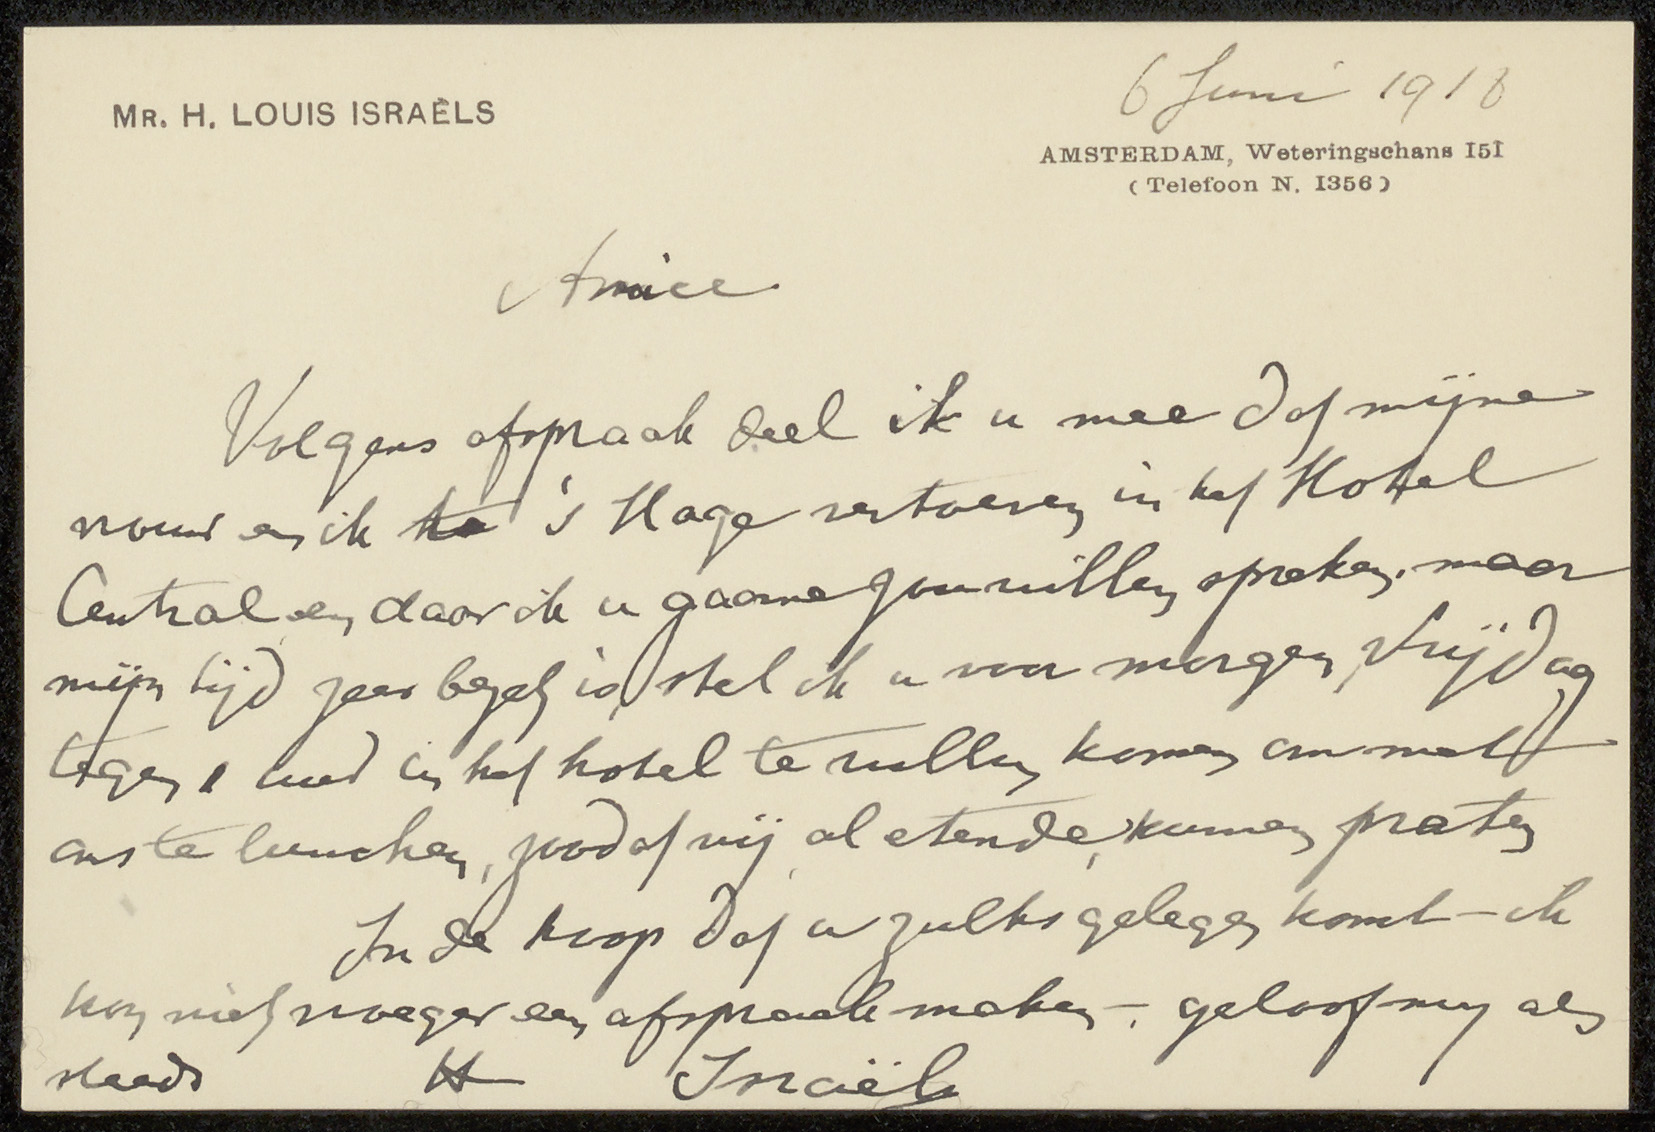 6 Juni 1918
MR. H. LOUIS ISRAËLS
AMSTERDAM, Weteringschans 151
(Telefoon N. 1356)
Amice
Volgens afspraak deel ik u mee dat mijne
vrouw en ik te 's Hage vertoeven in het Hotel
Central en daar ik u gaarne zou willen spreken, maar
mijn tijd zeer bezet is, stel ik u voor morgen, Vrijdag
tegen 1 uur in het hotel te willen komen om met
ons te lunchen, zoodat wij, al etende, kunnen praten
In de hoop dat u zulks gelegen komt – ik
kon niet vroeger een afspraak maken –, geloof mij als
steeds H Israëls